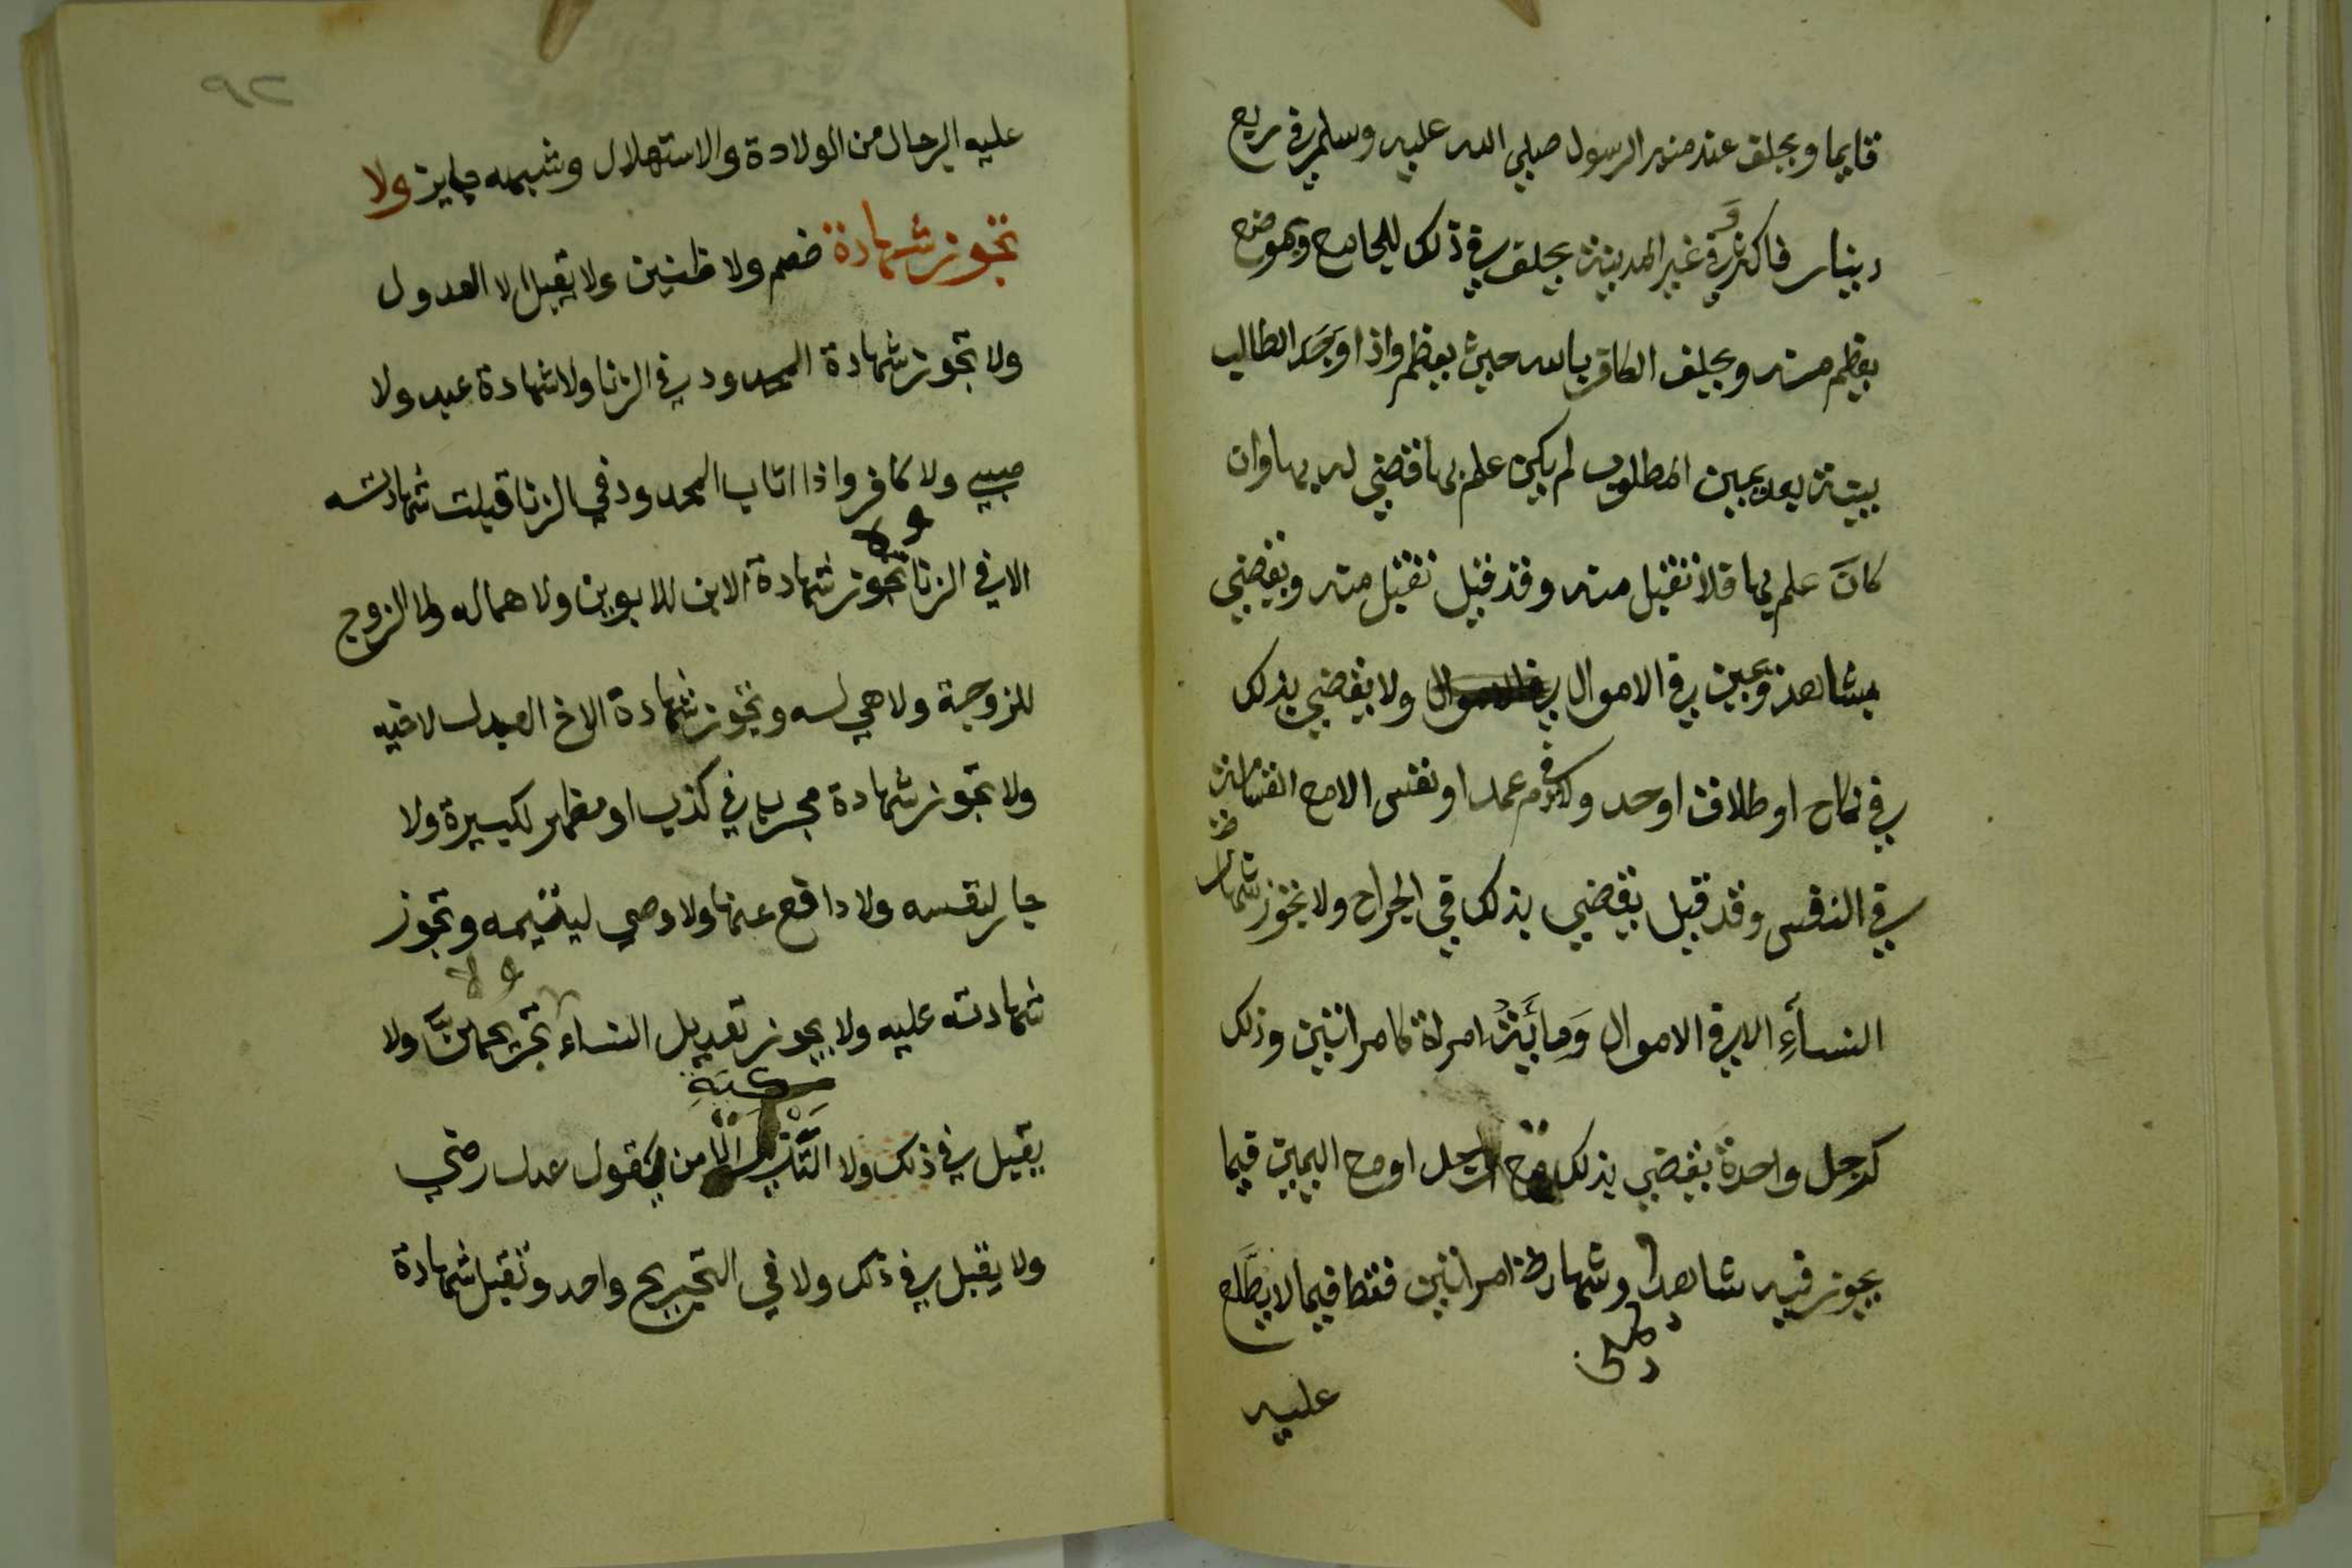 قايما ويحلف عند منبر الرسول صلي الله عليه وسلم في ربع
دينار فاكثر وفي غير المدينة يحلف في ذلك للجامع وبموضع
يعظم منه ويحلف الكافر بالله حيث يعظم واذا اوجد الطالب
بينة بعد يمين المطلوب لم يكن علم بها قضي له بها وان
كان علم بها فلا تقبل منه وقد قيل تقبل منه ويقضي
بشاهد ويمين في الاموال ولا يقضي بذلك
في نكاح او طلاق او حد ولا في دم عمد او نفس الا مع القسامة
في النفس وقد قيل يقضي بذلك في الجراح ولا تجوز شهادة
النسآءِ الا في الاموال وَمائَةُ امراة كامراتين وذلك
كرجل واحدة يقضي بذلك مع رجل او مع اليمين فيما
يجوز فيه شاهد وشهادة امراتين فقط فيما لا يطَّلع
عليه
٩٢
عليه الرجال من الولادة والاستهلال وشبهه جايز ولا
تجوز شهادة خصم ولا ظنين ولا يقبل الا العدول
ولا تجوز شهادة المحدود في الزنا ولا شهادة عبد ولا
صبي ولا كافر واذا اتاب المحدود في الزنا قبلت شهادته
الا في الزنا ولا تجوز شهادة الابن للابوين ولا هما له ولا الزوج
للزوجة ولا هي له وتجوز شهادة الاخ العدل لاخيه
ولا تجوز شهادة مجرب في كذب او مظهر لكبيرة ولا
جار لنفسه ولا دافع عنها ولا وصي ليتيمه وتجوز
شهادته عليه ولا يجوز تعديل النساء ولا تجريحهن ولا
يقبل في ذلك ولا التزكية الا من يقول عدل رضي
ولا يقبل في ذلك ولا في التجريح واحد وتقبل شهادة